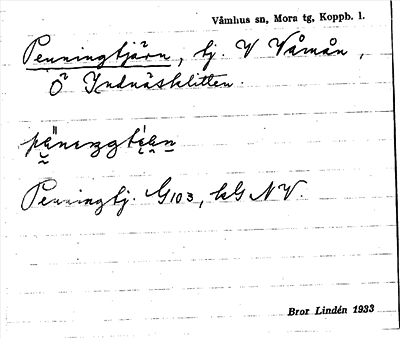 Våmhus sn, Mora tg, Koppb. l.
Penningtjärn, tj V Våmån,
Ö Indnäsklitten.
Penningtj. G103, kG NV.
Bror Lindén 1933